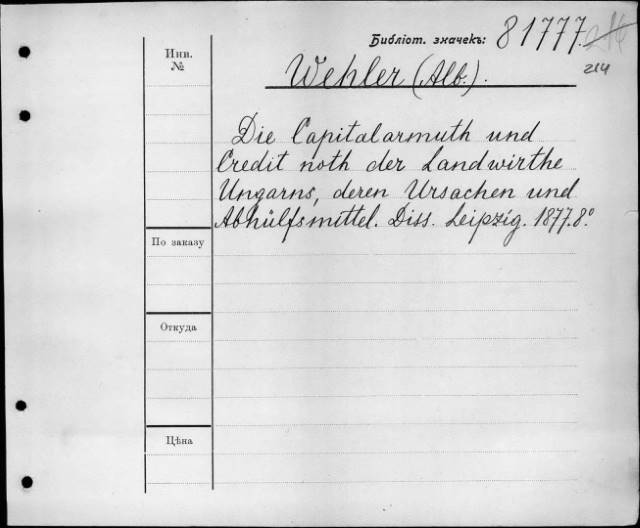 Библіот. значекъ: 81777.
214
Инв.
№
Wehler (Alb.).
Die Capitalarmuth und
Credit noth der Landwirthe
Ungarns, deren Ursachen und
Abhülfsmittel. Diss. Leipzig. 1877. 8º
По заказу
Откуда
Цѣна